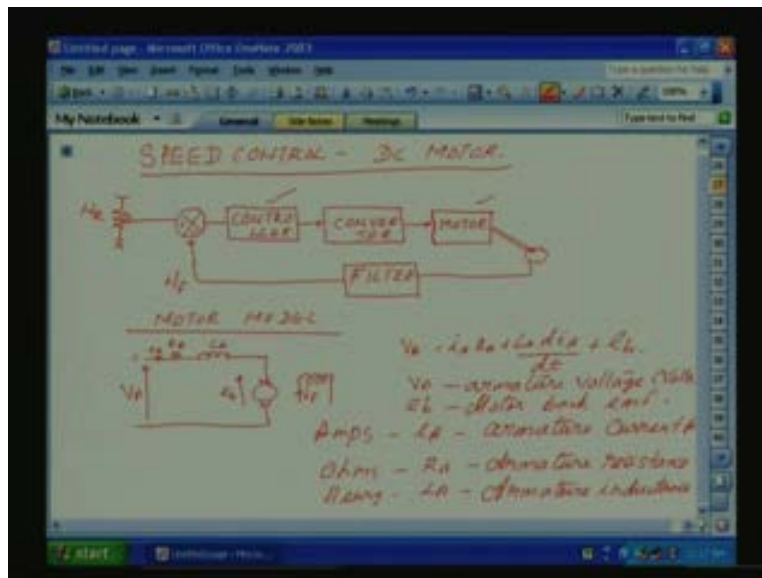 Untitled page - Microsoft Office OneNote 2003
File Edit View Insert Format Tools Window Help
Type a question for help
Back
100%
My Notebook
General
Side Notes
Meetings
Type text to find
SPEED CONTROL - DC MOTOR.
CONTRO
LLER
CONVER
TER
MOTOR
FILTER
MOTOR MODEL
VA - armature voltage (Volts
eb - Motor back emf.
Amps - iA - armature Current
Ohm - RA - Armature resistance
Henry - LA - Armature inductance
start